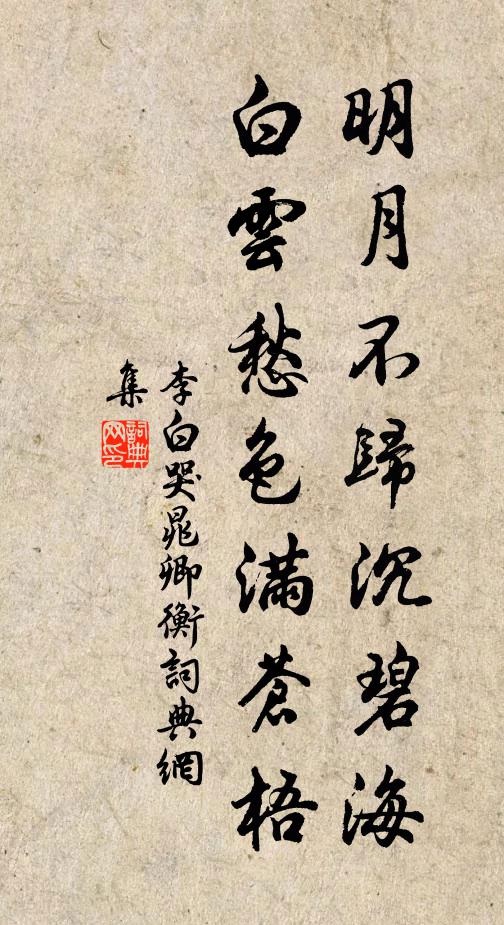 明月不歸沉碧海
白雲愁色滿蒼梧
李白哭晁卿衡詞典網
集
詞典网印